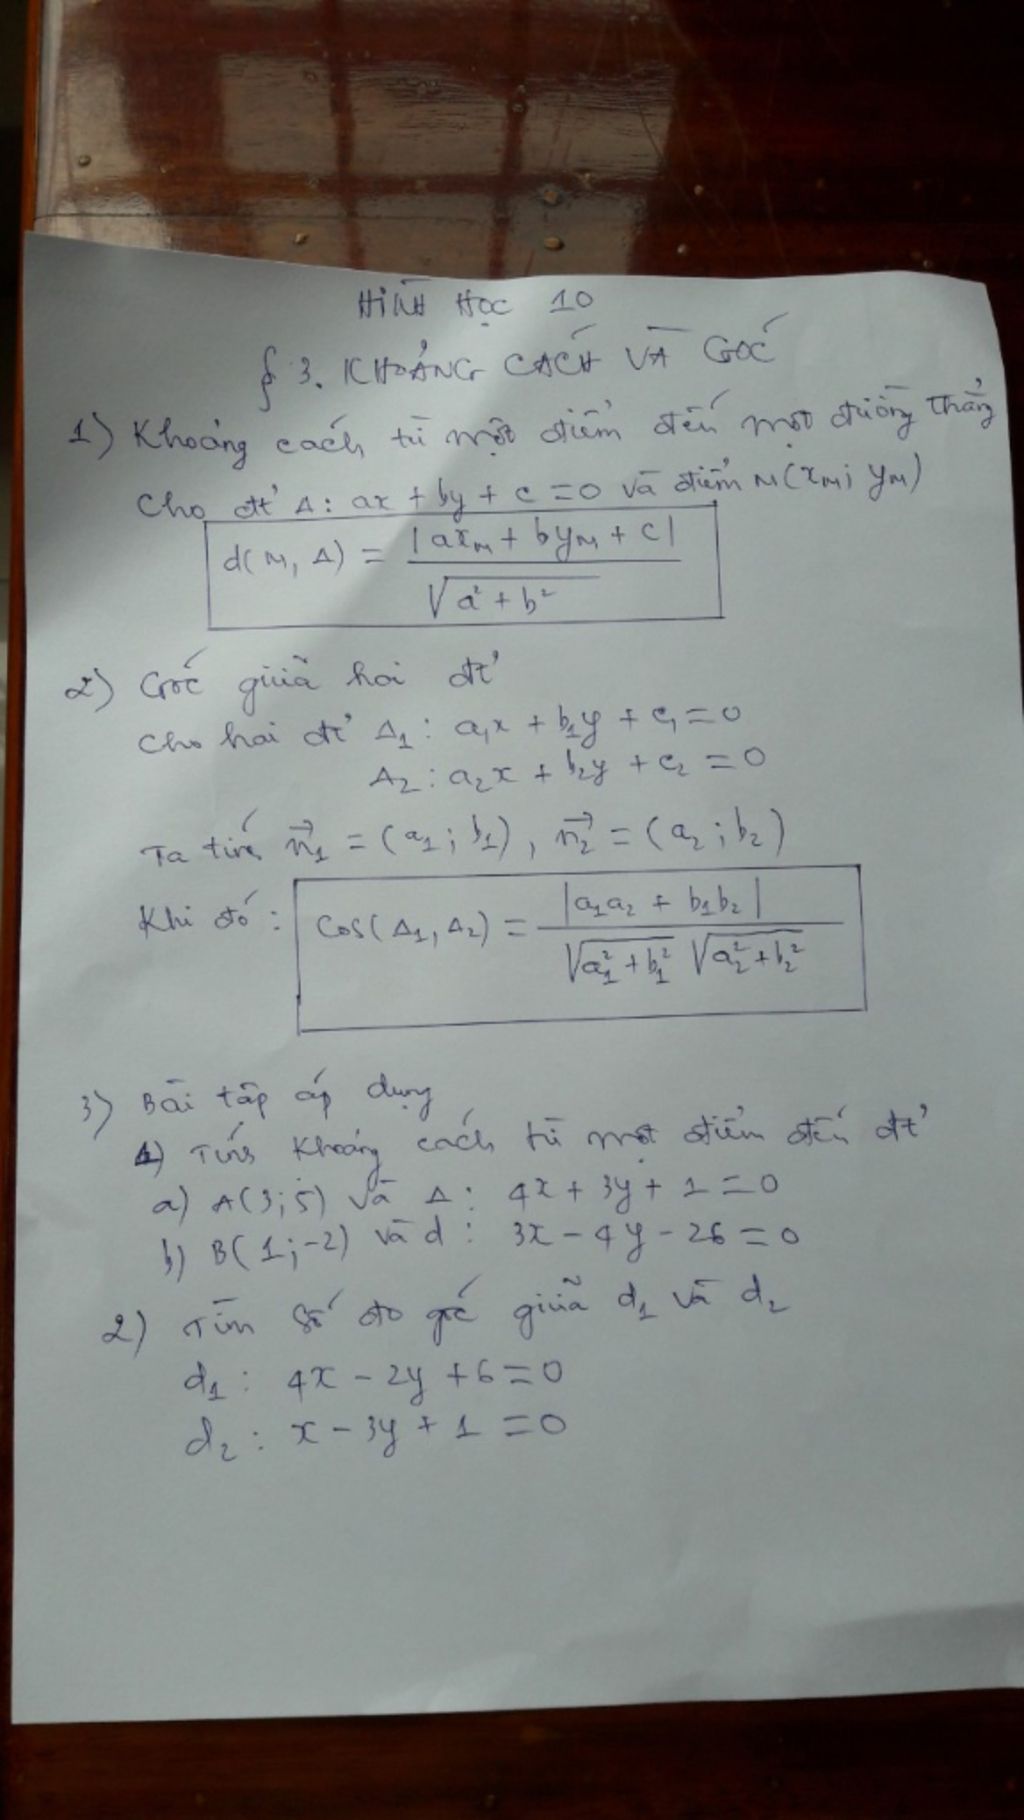 HÌNH HỌC 10
§ 3. KHOẢNG CÁCH VÀ GÓC
1) Khoảng cách từ một điểm đến một đường thẳng
Cho đt Δ: ax + by + c = 0 và điểm M(x_M; y_M)
d(M, Δ) = |ax_M + by_M + c| / √(a² + b²)
2) Góc giữa hai đt
Cho hai đt Δ₁: a₁x + b₁y + c₁ = 0
Δ₂: a₂x + b₂y + c₂ = 0
Ta tính n₁⃗ = (a₁; b₁), n₂⃗ = (a₂; b₂)
Khi đó: cos(Δ₁, Δ₂) = |a₁a₂ + b₁b₂| / √(a₁² + b₁²) √(a₂² + b₂²)
3) Bài tập áp dụng
1) Tính khoảng cách từ một điểm đến đt
a) A(3; 5) và Δ: 4x + 3y + 1 = 0
b) B(1; -2) và d: 3x - 4y - 26 = 0
2) Tìm số đo góc giữa d₁ và d₂
d₁: 4x - 2y + 6 = 0
d₂: x - 3y + 1 = 0